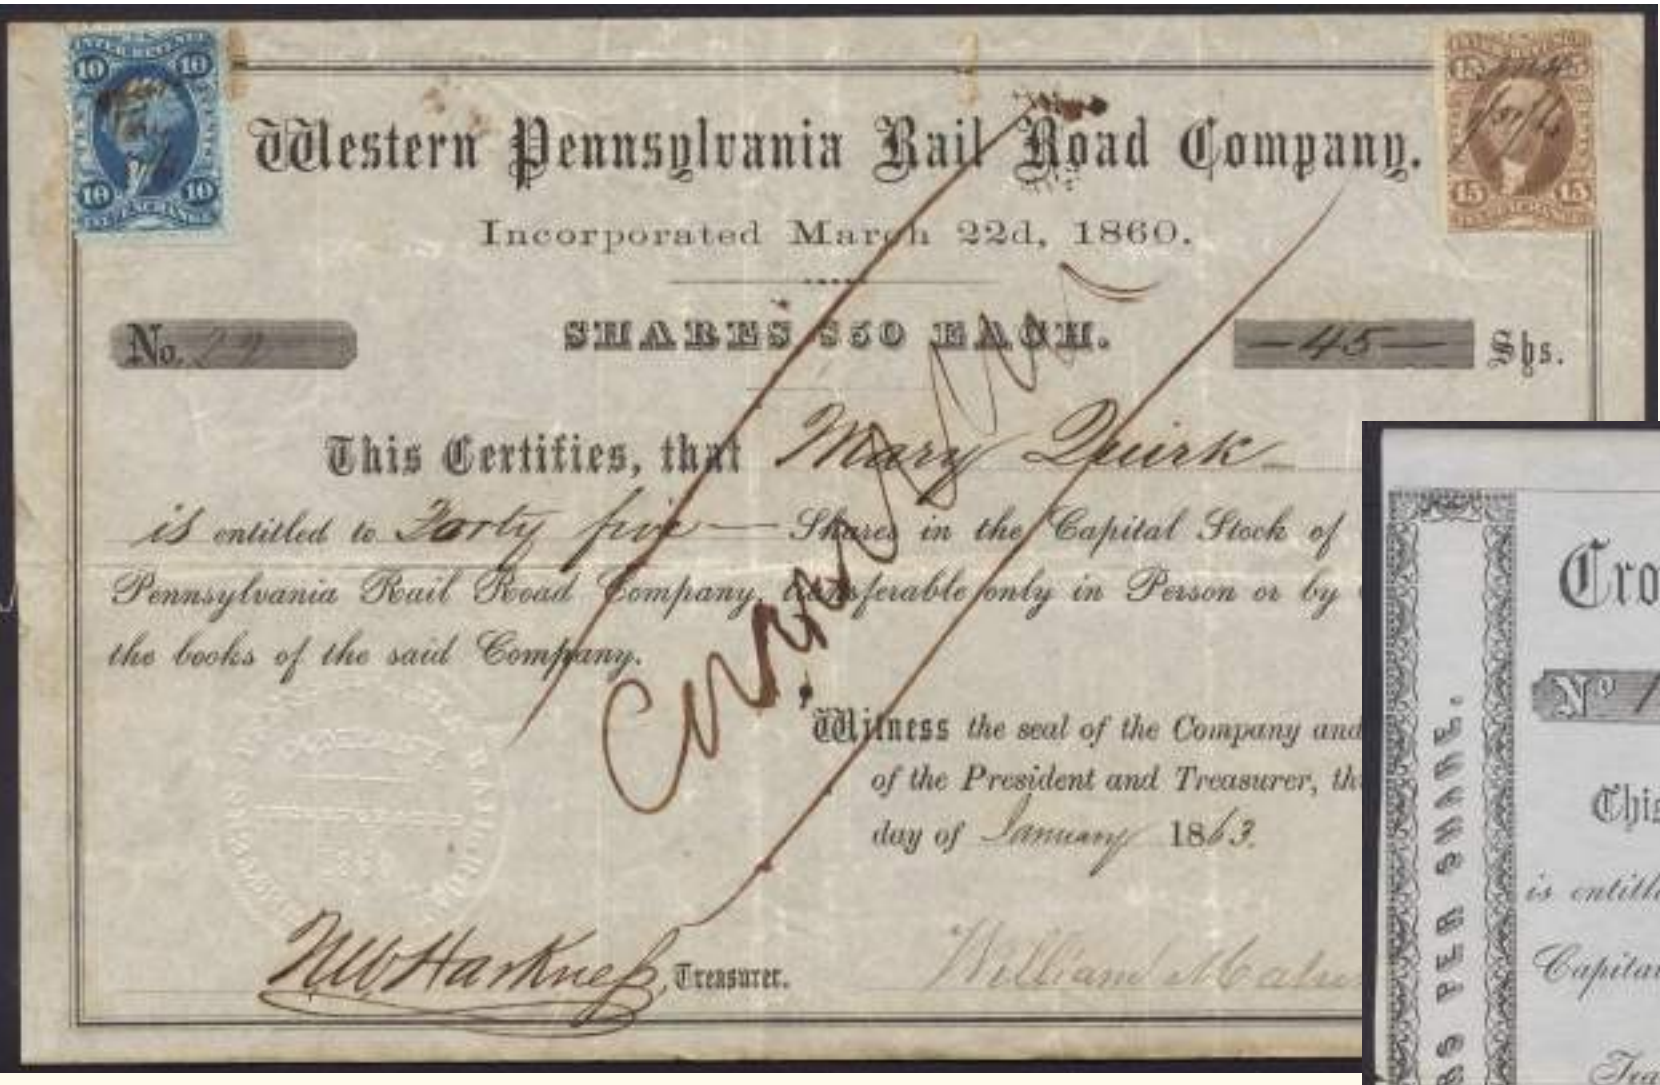 10 10
15
Western Pennsylvania Rail Road Company.
10 10
15 15
Incorporated March 22d, 1860.
No. 22
SHARES $50 EACH.
—45— Shs.
This Certifies, that Mary Quirk
is entitled to Forty five — Shares in the Capital Stock of
Pennsylvania Rail Road Company, transferable only in Person or by
the books of the said Company.
Witness the seal of the Company and
of the President and Treasurer, th
day of January 1863.
NW Harkness, Treasurer.
William
Cro
No 1
This
is entitl
Capita
Tra
RS PER SHARE.